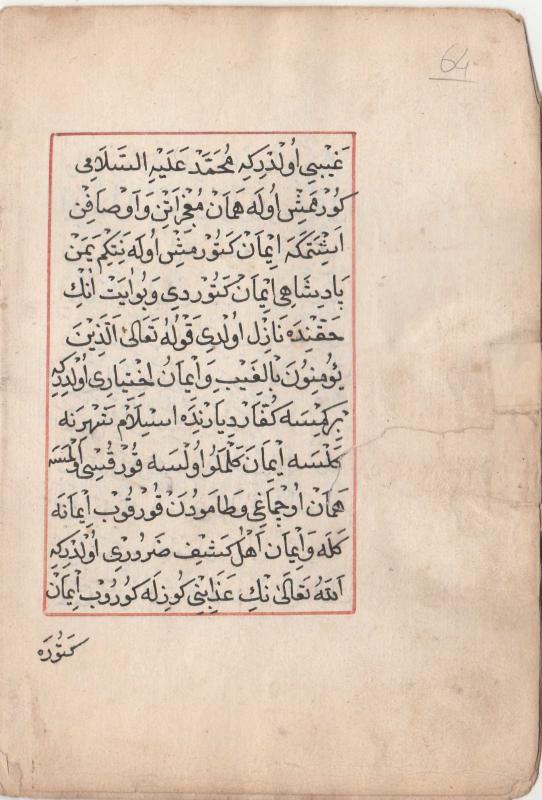 64
غَيْبِي اُولْدُركِه مُحَمَّدْ عَلَيْهِ السَّلَامِي
كورْمَمِشْ اُولَه هَمَانْ مُعْجِزَاتِنْ وَاَوْصَافِنْ
اِشِتْمَكَه اِيمَانْ كَتُورْمِشْ اُولَه نِتَكِمْ يَمَنْ
پَادِشَاهِي اِيمَانْ كَتُورْدِي وَبُو اٰيَتْ اَنِكْ
حَقْنِدَه نَازِلْ اُولْدِي قَوْلُهُ تَعَالَى اَلَّذِينَ
يُؤْمِنُونَ بِالْغَيْبِ وَاِيمَانُ اِخْتِيَارِي اُولْدِركِه
بِرْكِمْسَه كُفَّارْ دِيَارِنْدَه اِسْلَامْ شَهْرِنَه
كَلْسَه اِيمَانْ كَلْمَلُو اُولْسَه قُورْقُسِي اُولْمَسَه
هَمَانْ اُوچْمَاغِي وَطَامُودَنْ قُورْقُوبْ اِيمَانَه
كَلَه وَاِيمَانِ اَهْلُ كَشِيفِ ضَرُورِي اُولْدُركِه
اَللّٰهُ تَعَالَى نِكْ عَذَابِنِي كُوزِلَه كُورُوبْ اِيمَانْ
كَتُورَه